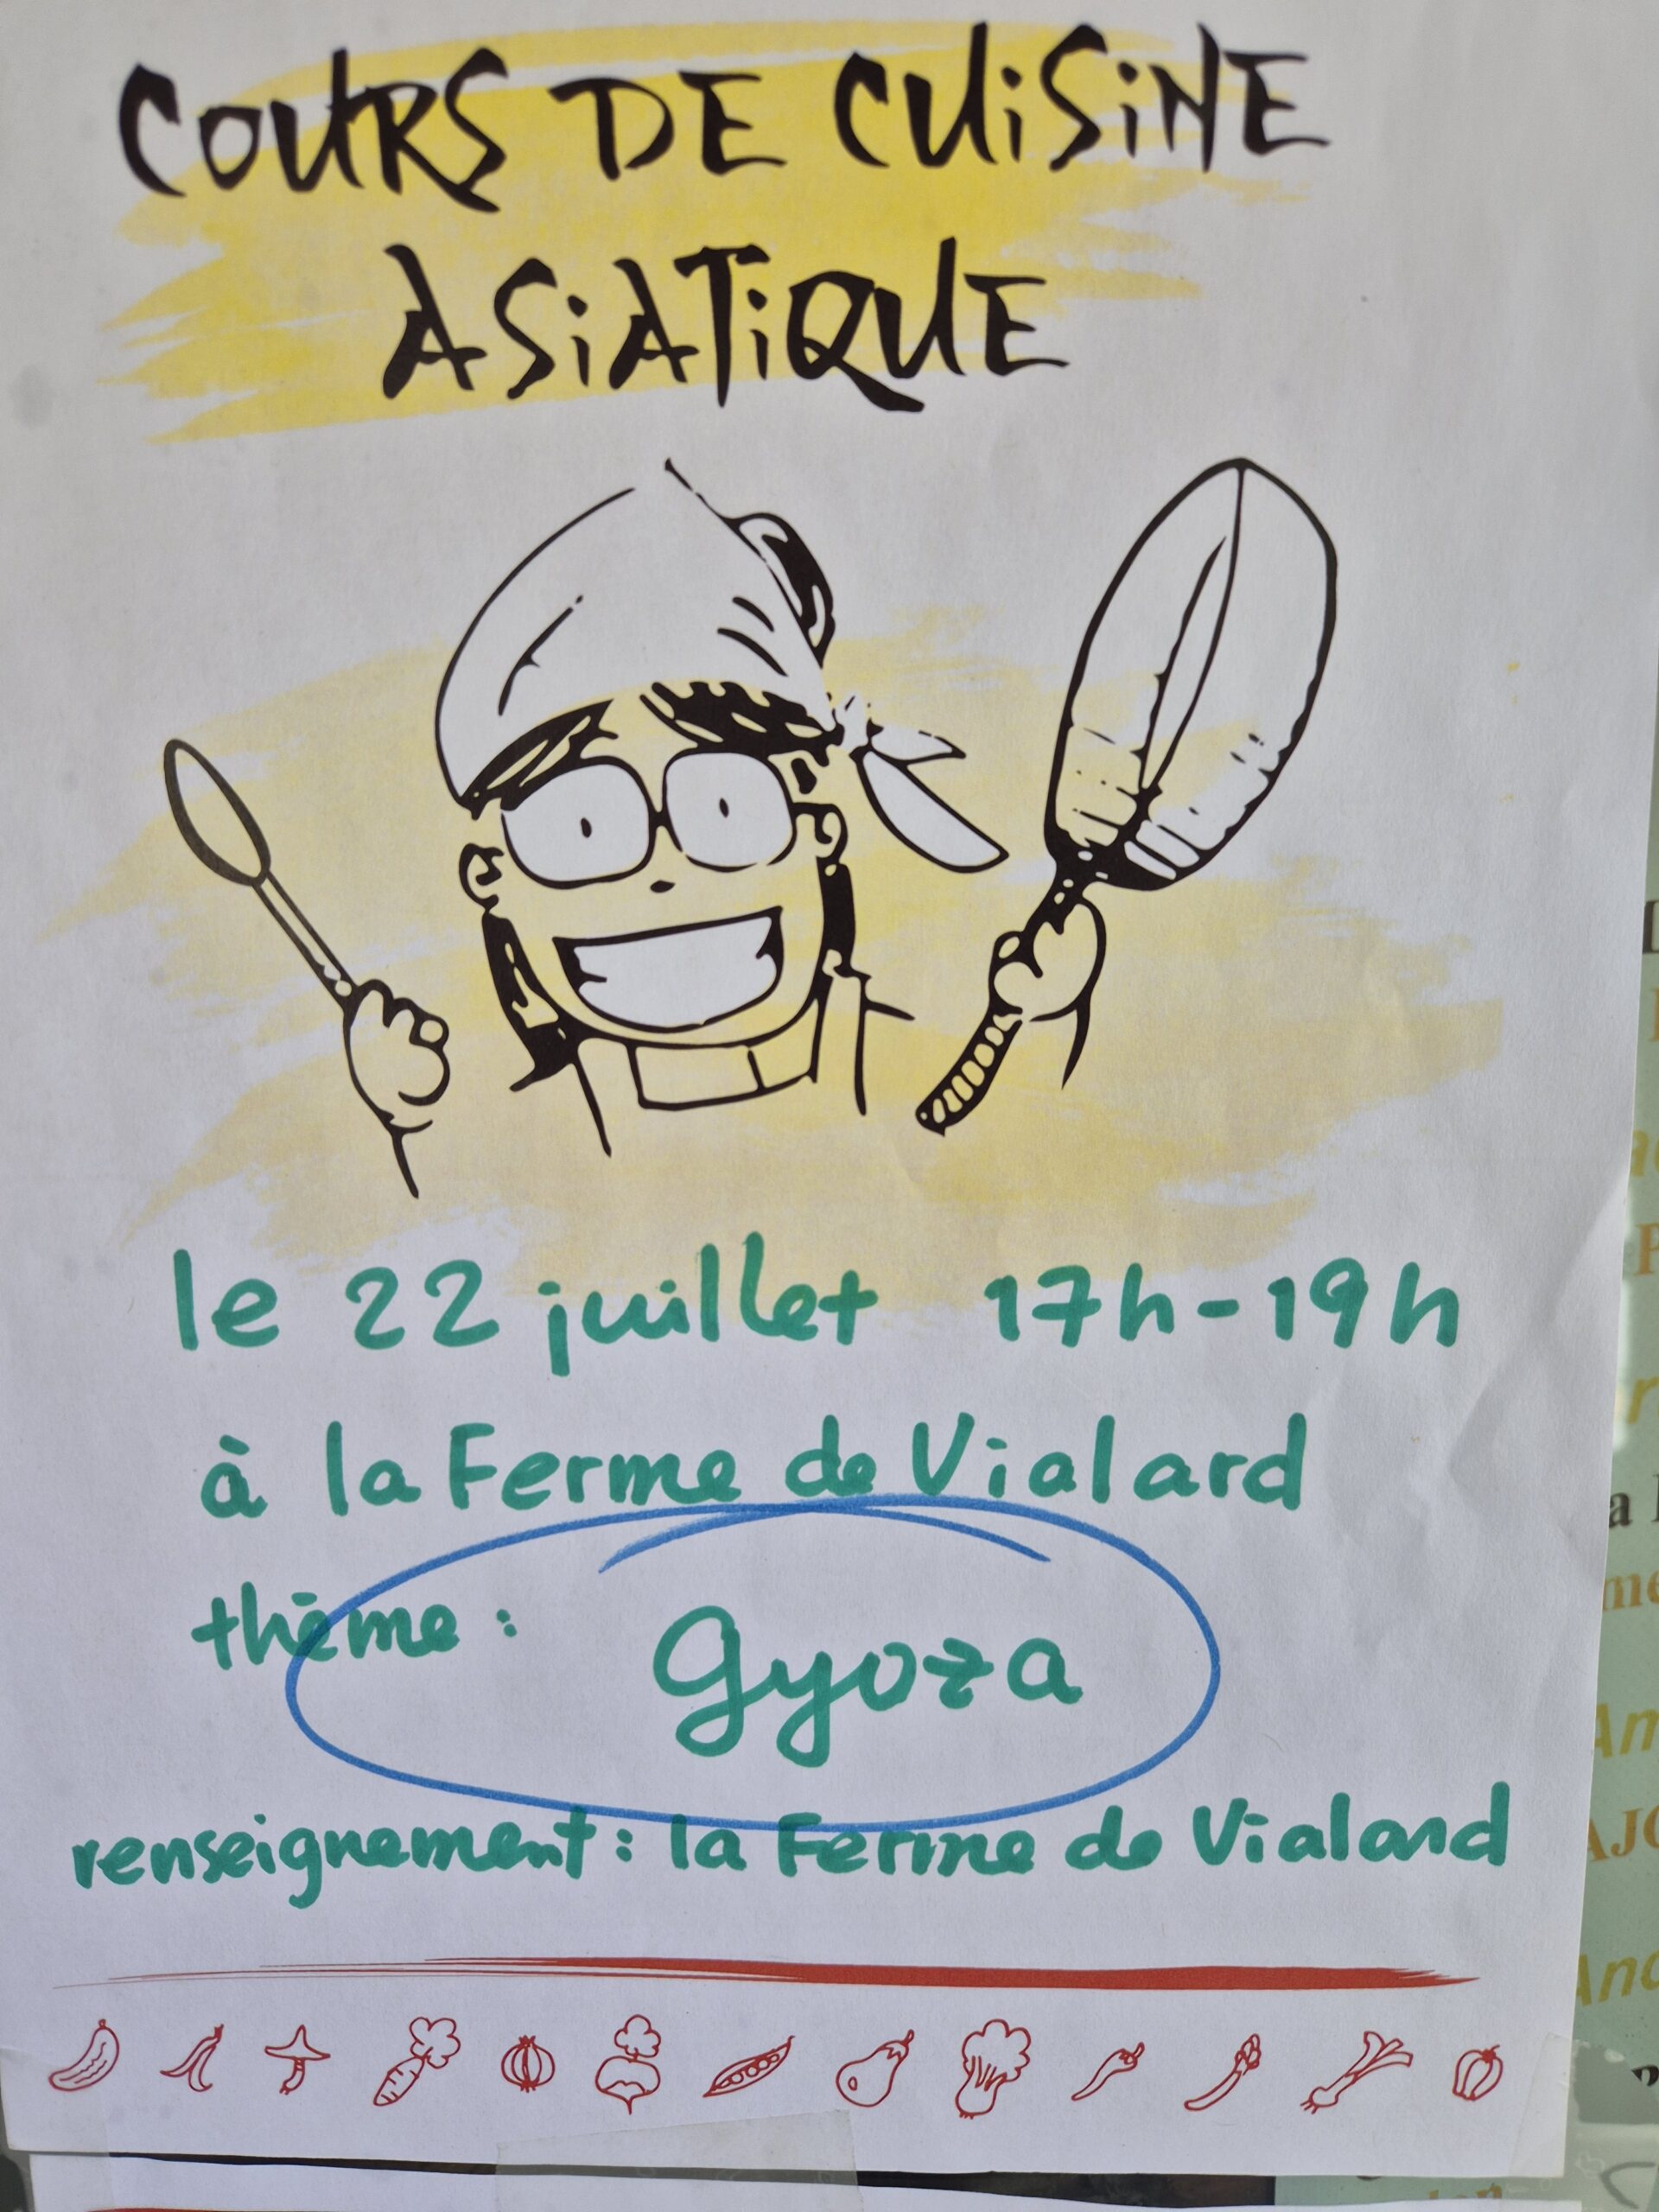 COURS DE CUISINE
ASIATIQUE
le 22 juillet 17h-19h
à la Ferme de Vialard
thème :
Gyoza
renseignement : la Ferme de Vialard